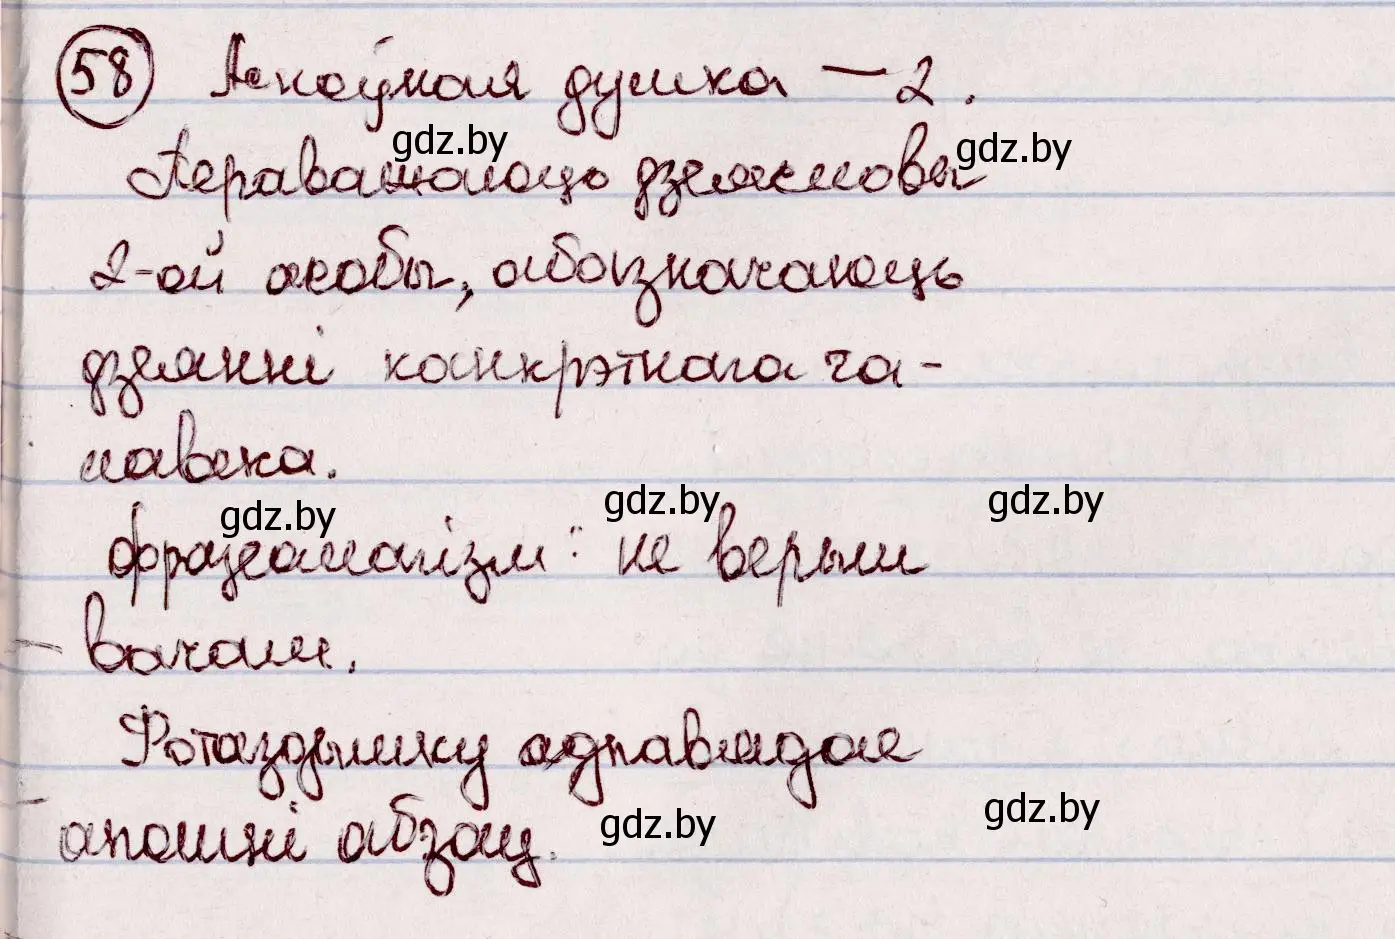 58 Асноўная думка — 2.
gdz.by
gdz.by
Пераважаюць дзеясловы
2-ой асобы, абазначаюць
дзеянні канкрэтнага ча-
лавека.
gdz.by
gdz.by
gdz.by
Фразеалагізм: не верыш
вачам.
Фотаздымку адпавядае
апошні абзац.
gdz.by
gdz.by